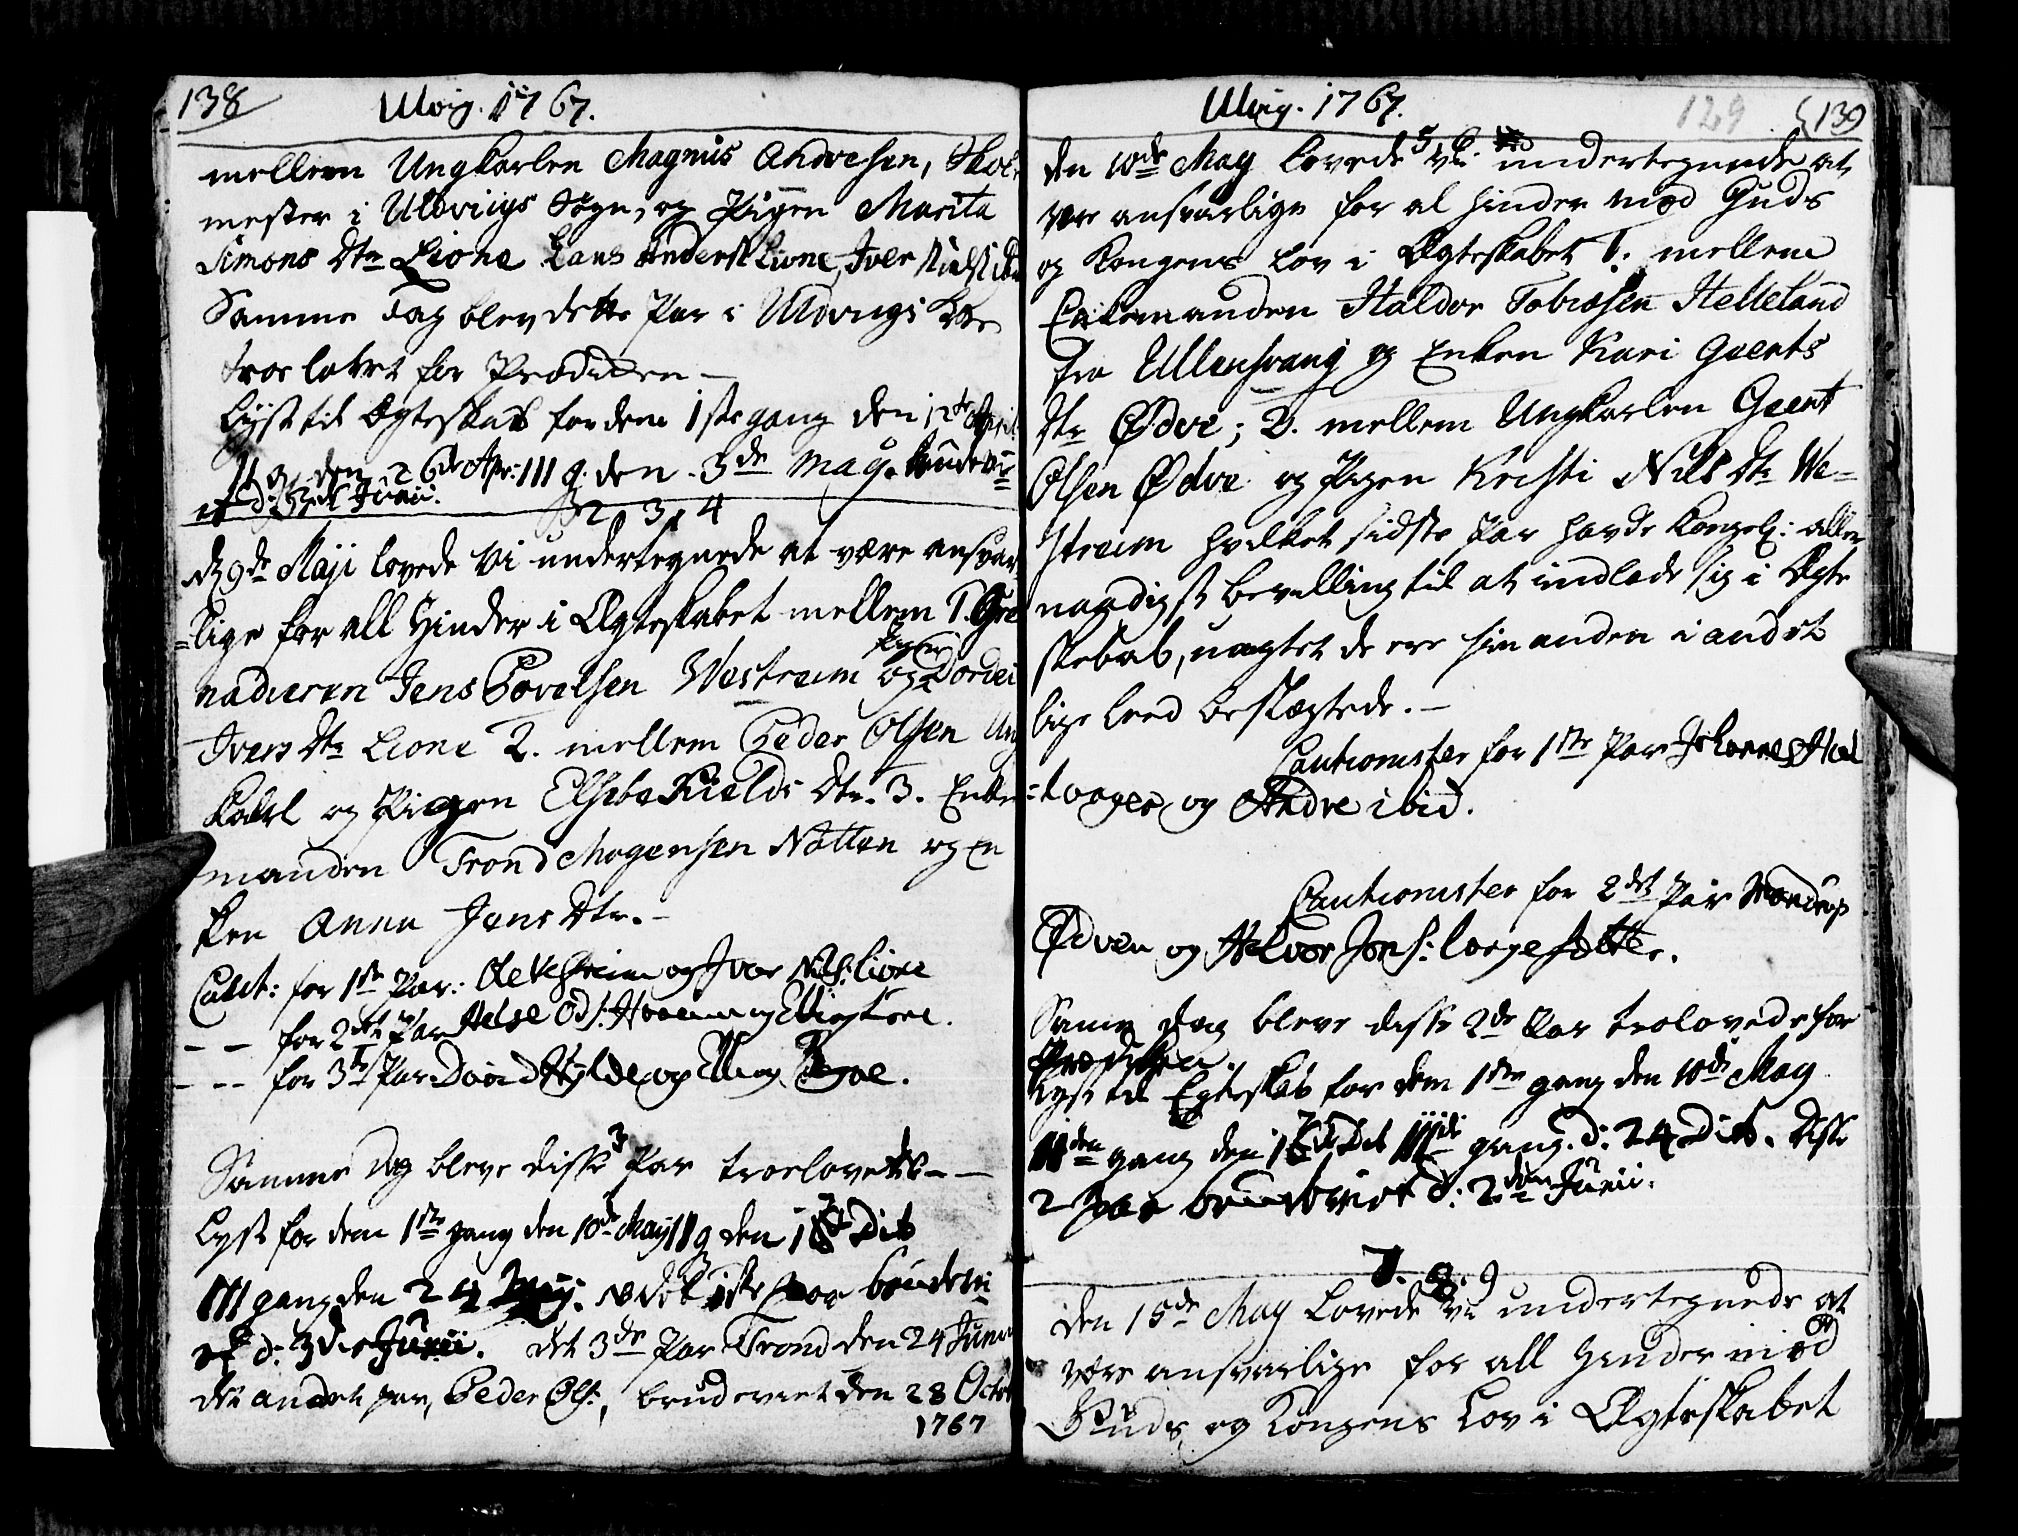 138 Ulvig. 1767.
mellem Ungkarlen Magnus Andresen, Skol
mester i Uldvigs Sogn, og Pigen Marita
Simons Dtr Lione Lars Anders: Lione, Iver Niels: ibid
Samme Dag blev dette Par i Uldvigs Kirke
troelovet for Prædiken –
Lyst til Ægteskab for dem 1ste gang den 12te April
II g. den 26de Apr: III g. den 3de May. brudevi=
et d: 3de Junii.
2, 3, 4
D. 9de Maji lovede Vi undertegnede at være ansvar
=lige for all Hinder i Ægteskabet mellem 1. Gre
nadieren Jens Povelsen Westreim og Pigen Dordei
Ivers Dtr Lione 2. mellem Peder Olsen Ung
Karl og Pigen Elsebe Kields Dtr. 3. Enke
manden Trond Mogensen Notten og En
ken Anna Jens Dtr. –
Caut: for 1ste Par: Ole Vestreim og Iver Nils: Lione
– – for 2det Par Helge Od:
– – for 3die Par David Hylde og Elling
Samme Dag bleve disse 3 Par troelovede – –
Lyst for dem 1ste gang den 10de May II g den 17de Dito
III gang den 24 May. NB det 1ste Par brudevi
et d: 3die Junii. det 3de Par Trond den 24 Junii
det andet par, Peder Ols:, brudeviet den 28 Octob
1767
Ulvig. 1767. 129 139
5. 6.
den 10de May lovede vi undertegnede at
vere ansvarlige for al hinder mod Guds
og Kongens Lov i Ægteskabet 1. mellem
Enkemanden Haldor Tobiasen Helleland
fra Ullensvang og Enken Kari Geerts
Dtr Ødve; 2. mellem Ungkarlen Geert
Olsen Ødve og Pigen Kristi Nils Dtr We=
streim hvilket sidste Par havde Kongel: aller
naadigst bevilling til at indlade sig i Ægte
skebab, uagtet de ere hinanden i andet
lige Leed beslægtede. –
Cautionister for 1ste Par Johannes Hal
=dvager og Andve ibid.
Cautionister for 2det Par
Ødven og Halvor Jons:
Samme Dag bleve disse 2de Par trolovede for
Prædiken.
Lyst til Egteskab for dem 1ste gang den 10de May
IIden gang den 17de Dito IIIdie gang. d: 24 Dito. Disse
2 Par brudeviet d: 2den Junii.
7. 8. 9
den 15de May lovede vi undertegnede at
være ansvarlige for all Hinder mod
Guds og Kongens Lov i Ægteskabet